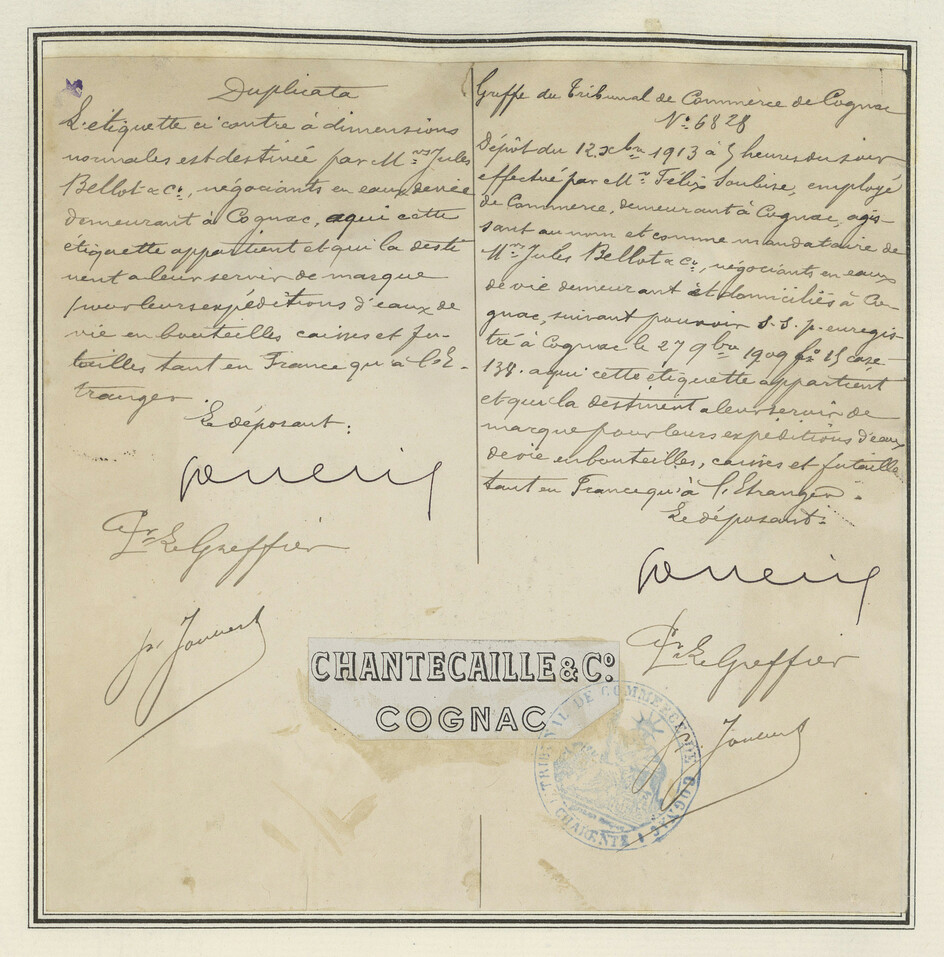 Duplicata
L'étiquette ci contre à dimensions
normales est destinée par M.rs Jules
Bellot & Cie, négociants en eaux de vie
demeurant à Cognac, a qui cette
étiquette appartient et qui la desti
nent a leur servir de marque
pour leurs expéditions d'eaux de
vie en bouteilles caisses et fu-
tailles tant en France qu'à l'E-
tranger
Le déposant:
Pr. Le Greffier
Greffe du Tribunal de Commerce de Cognac
No. 6828
Dépôt du 12 Xbre 1913 à 5 heures du soir
effectué par Mr. Félix employé
de Commerce, demeurant à Cognac, agis-
sant au nom et comme mandataire de
M.rs Jules Bellot & Co, négociants en eaux
de vie demeurant et domiciliés à Co-
gnac, suivant pouvoir S.S.p. enregis-
tré à Cognac le 27 9bre 1909 fo 15 case
138. a qui cette étiquette appartient
et qui la destinent a leur servir de
marque pour leurs expéditions d'eaux
de vie en bouteilles, caisses et futailles
tant en France qu'à l'Etranger.
Le déposant:
Pr. Le Greffier
pr Joubert
pr Joubert
CHANTECAILLE & Co.
COGNAC
TRIBUNAL DE COMMERCE DE COGNAC
CHARENTE